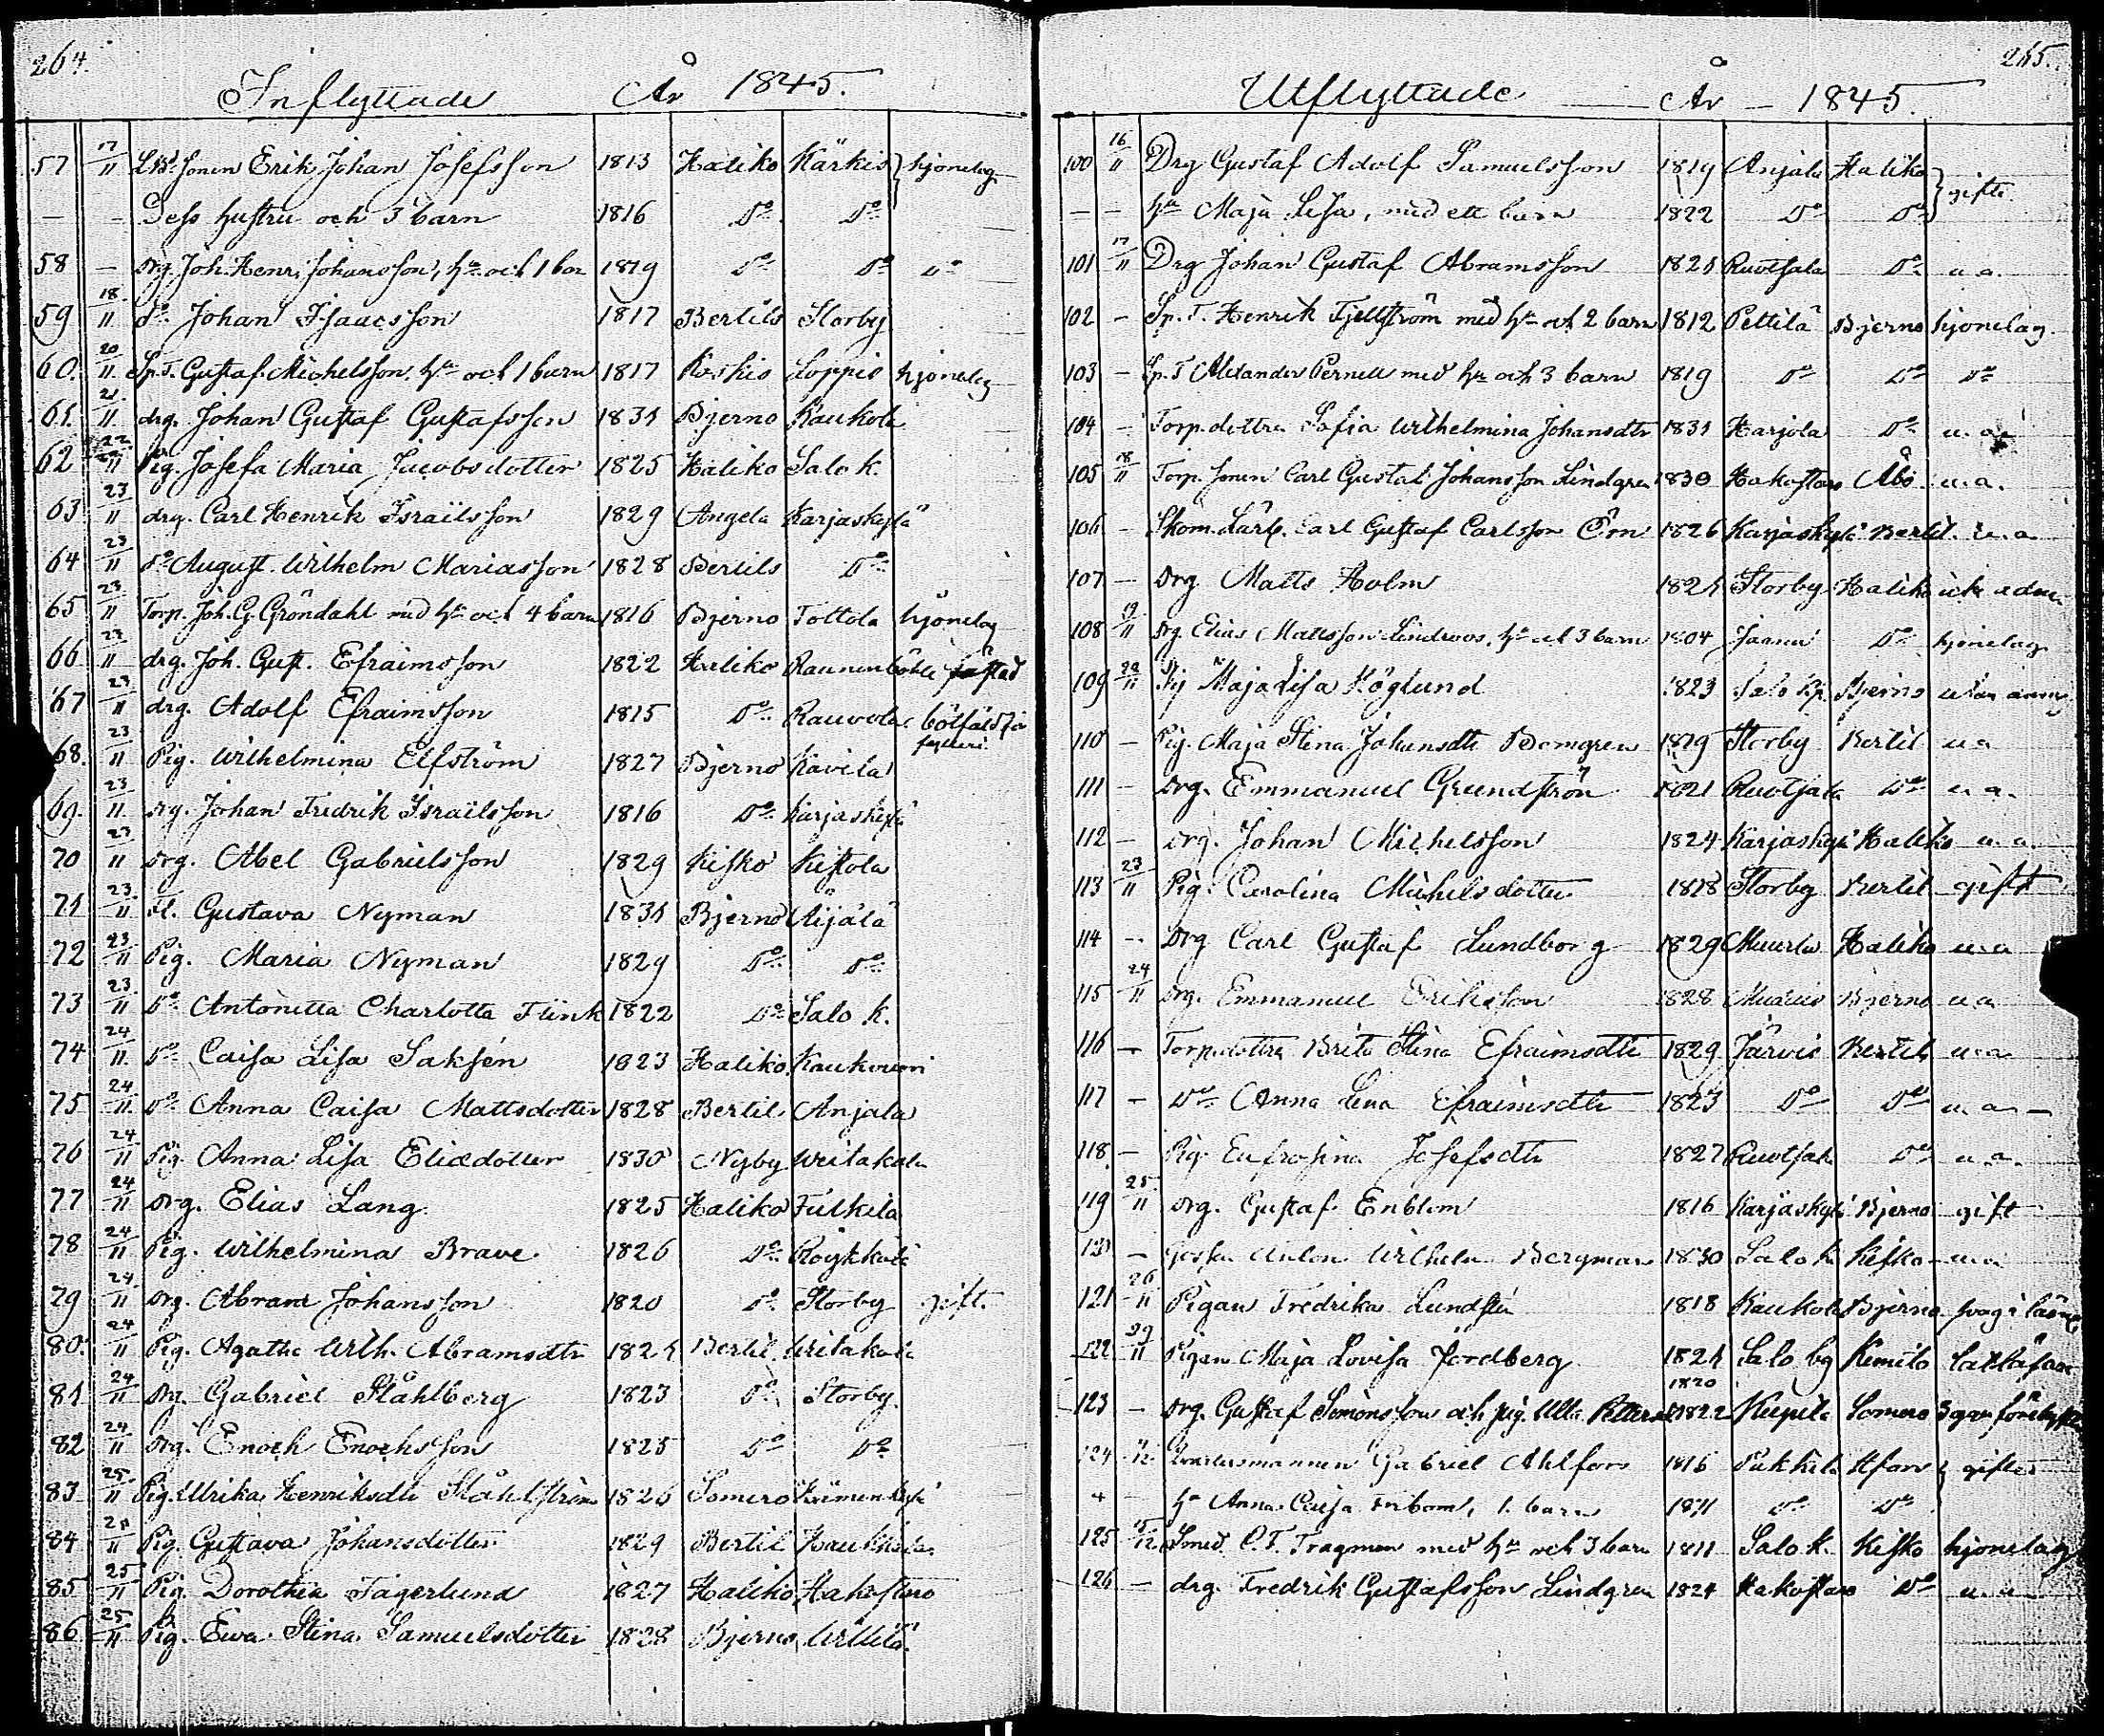 264.
Inflyttade År 1845.
57 17/11 Erik Johan Josefsson 1813 Haliko Kärkis hjonelag
— - Dess hustru och 3 barn 1816 Do Do
58 — drg. Joh. Henr. Johansson, hu och 1 bar 1819 Do Do Do
59 18/11 do Johan Isaacsson 1817 Bertils Storby
60. 20/11 Sp.T. Gustaf Michelsson, hu och 1 barn 1817 Koskis Loppis hjonelag
61. 21/11 drg. Johan Gustaf Gustafsson 1831 Bjerno Kaukola
62 22/11 Pig. Josefa Maria Jacobsdotter 1825 Haliko Salo k.
63 23/11 drg. Carl Henrik Israilsson 1829 Angela Karjaskylä
64 23/11 Do August Wilhelm Mariasson 1828 Bertils Do
65 23/11 Torp. Joh. G. Gröndahl med hu och 4 barn 1816 Bjerno Tottola hjonelag
66 23/11 drg. Joh. Gust. Efraimsson 1822 Haliko
67 23/11 drg. Adolf Efraimsson 1815 Do Rauvola
68. 23/11 Pig. Wilhelmina Elfström 1827 Bjerno Kavila
69. 23/11 drg. Johan Fredrik Israilsson 1816 Do Karjaskylä
70 23/11 drg. Abel Gabrielsson 1829 Kisko Kistola
71 23/11 Gustava Nyman 1831 Bjerno Äijälä
72 23/11 Pig. Maria Nyman 1829 Do Do
73 23/11 Do Antonetta Charlotta Flink 1822 Do Salo k.
74 24/11 Do Caisa Lisa Saksén 1823 Haliko
75 24/11 Do Anna Caisa Mattsdotter 1828 Bertils Anjala
76 24/11 Pig. Anna Lisa Eliædotter 1830 Nyby Weitakala
77 24/11 drg. Elias Lang 1825 Haliko
78 24/11 Pig. Wilhelmina Brave 1826 Do
79 24/11 drg. Abram Johansson 1820 Do Storby gift.
80. 24/11 Pig. Agatha Wilh. Abramsdtr 1821 Bertil
81 24/11 drg. Gabriel Ståhlberg 1823 Do Storby
82 24/11 drg. Enoch Enochsson 1825 Do Do
83 25/11 Pig. Ulrika Henriksdtr Ståhlström 1826 Somero
84 Pig. Gustava Johansdotter 1829 Bertil
85 25/11 Pig. Dorothea Tagerlund 1827 Haliko Hakostaro
86 25/11 Pig. Ewa Stina Samuelsdotter 1828 Bjerno
265.
Utflyttade År — 1845.
100 16/11 Drg Gustaf Adolf Samuelsson 1819 Anjala Haliko gifte
— — hu Maja Lisa, med ett barn 1822 Do Do
101 17/11 Drg Johan Gustaf Abramsson 1821 Ruotsala Do u.a.
102 — Sp.T. Henrik Fjellström med hu och 2 barn 1812 Pettilä Bjerno hjonelag.
103 — Sp.T. Alexander Pernell med hu och 3 barn 1819 Do Do Do
104 — Torp.dottren Sofia Wilhelmina Johansdtr 1831 Harjola Do u.a.
105 18/11 Torp.sonen Carl Gustaf Johansson Lindgren 1830 Hakostaro Åbo u.a.
106 — Skom. Lärl. Carl Gustaf Carlsson Örn 1826 Karjaskylä Bertil. u.a.
107 — Drg Matts Holm 1821 Storby Haliko
108 19/11 drg. Elias Mattsson Lindroos, hu och 3 barn 1804 Do hjonelag
109 22/11 Maja Lisa Höglund 1823 Salo Bjerno
110 — Pig. Maja Stina Johansdtr Bomgren 1819 Storby Bertil u.a
111 — drg. Emmanuel Grundström 1821 Ruotsala Do u.a.
112 — drg. Johan Michelsson 1824 Karjaskylä Haliko u.a.
113 23/11 Pig. Carolina Michelsdotter 1818 Storby Bertil gift
114 — drg Carl Gustaf Lundborg 1829 Muurla Haliko u.a
115 24/11 drg. Emmanuel Eriksson 1828 Bjerno u.a
116 — Torp.dottren Brita Stina Efraimsdtr 1829 Järvis Bertil u.a.
117 — Do Anna Lena Efraimsdtr 1823 Do Do u.a. —
118 — Pig. Eufrosina Josefsdtr 1827 Ruotsala Do u.a.
119 25/11 drg. Gustaf Enblom 1816 Karjaskylä Bjerno gift
120 — Anton Wilhelm Bergman 1830 Salo k. Kisko u.a
121 26/11 Pigan Fredrika Lundstén 1818 Kaukola Bjerno
122 29/11 Pigan Maja Lovisa Jordberg 1821 Salo bg Kimito
1820
123 — drg. Gustaf Simonsson och pig. Ulla 1822 Somero
124 Gabriel Ahlfors 1816 gifte
hu Anna Caisa 1 barn 1811 Do Do
125 15/12 Smed. C.F. Tragman med hu och 3 barn 1811 Salo k. Kisko hjonelag
126 — drg. Fredrik Gustafsson Lindgren 1824 Hakostaro Do u.a